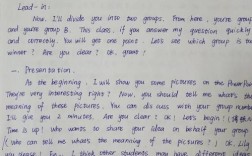 Lead-in:
Now, I'll divide you into two groups. From here, you're group
and you're group B. This class, if you answer my question quickly
and correctly You will get one point. Let's see which group is the
winner? Are you clear? Ok, great!
一. Presentation.
At the beginning, I will show you some pictures on the
They're very interesting right? Now, you should tell me what's the
meaning of these pictures. You can discuss with your group
I'll give you 2 minutes. Are you clear? Ok! Let's begin!
Time is up! who wants to share your idea on behalf your group
(Who can tell me what's the meaning of the picture?) OK,
you please! I think other students may have different